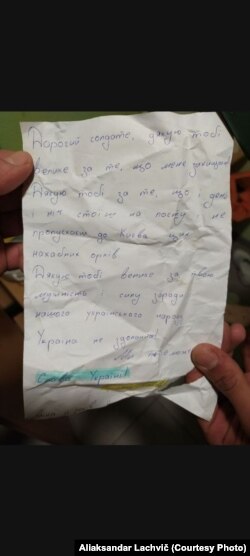 Дорогий солдате, дякую тобі
велике за те, що мене захищаєш
Дякую тобі за те, що і день
і ніч стоїш на посту і не
пропускаєш до Києва цих
нахабних орків
Дякую тобі велике за твою
мужність і силу заради
нашого українського народу
Україна не здається!
Ми переможемо
Слава Україні!
Aliaksandar Lachvič (Courtesy Photo)